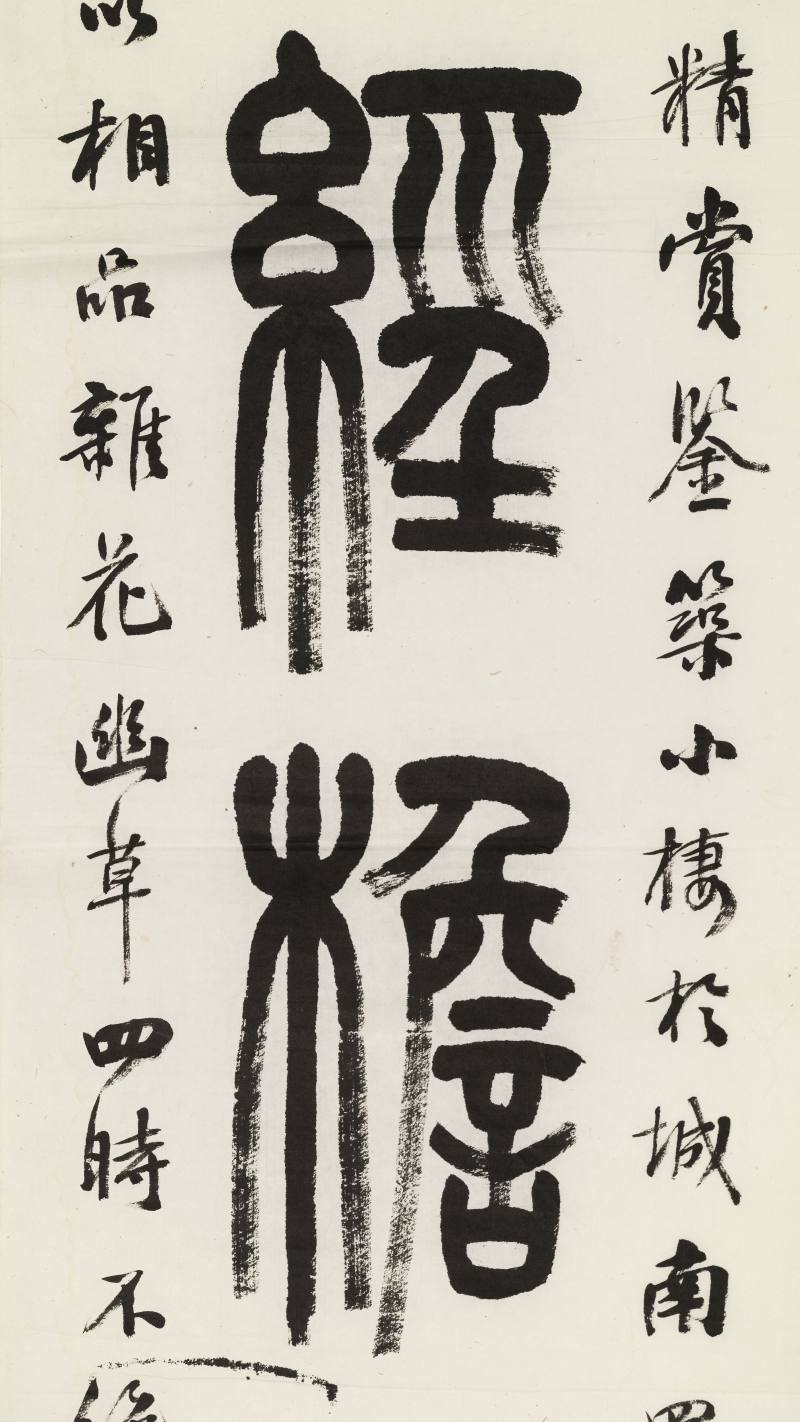 精賞鑒築小棲於城南
經檐
以相品雜花幽草四時不絕